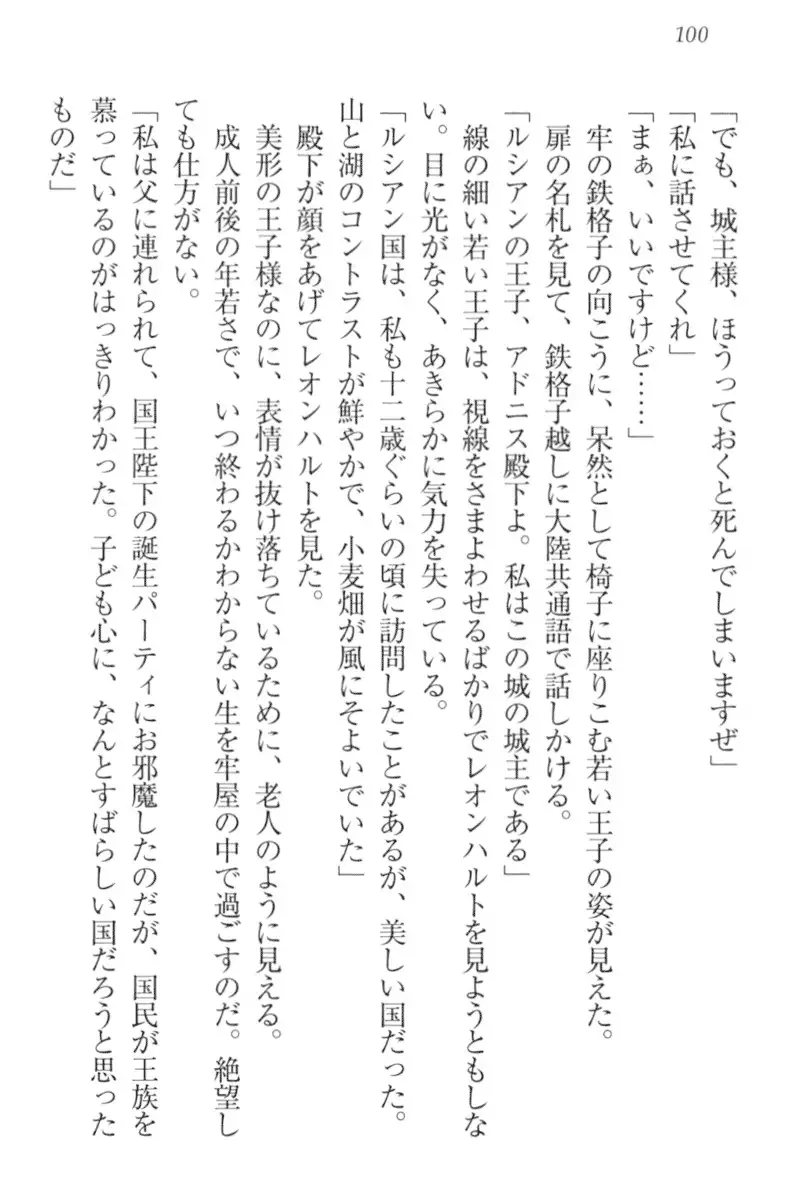 100
「でも、城主様、ほうっておくと死んでしまいますぜ」
「私に話させてくれ」
「まぁ、いいですけど……」
牢の鉄格子の向こうに、呆然として椅子に座りこむ若い王子の姿が見えた。
扉の名札を見て、鉄格子越しに大陸共通語で話しかける。
「ルシアンの王子、アドニス殿下よ。私はこの城の城主である」
線の細い若い王子は、視線をさまよわせるばかりでレオンハルトを見ようともしな
い。目に光がなく、あきらかに気力を失っている。
「ルシアン国は、私も十二歳ぐらいの頃に訪問したことがあるが、美しい国だった。
山と湖のコントラストが鮮やかで、小麦畑が風にそよいでいた」
殿下が顔をあげてレオンハルトを見た。
美形の王子様なのに、表情が抜け落ちているために、老人のように見える。
成人前後の年若さで、いつ終わるかわからない生を牢屋の中で過ごすのだ。絶望し
ても仕方がない。
「私は父に連れられて、国王陛下の誕生パーティにお邪魔したのだが、国民が王族を
慕っているのがはっきりわかった。子ども心に、なんとすばらしい国だろうと思った
ものだ」